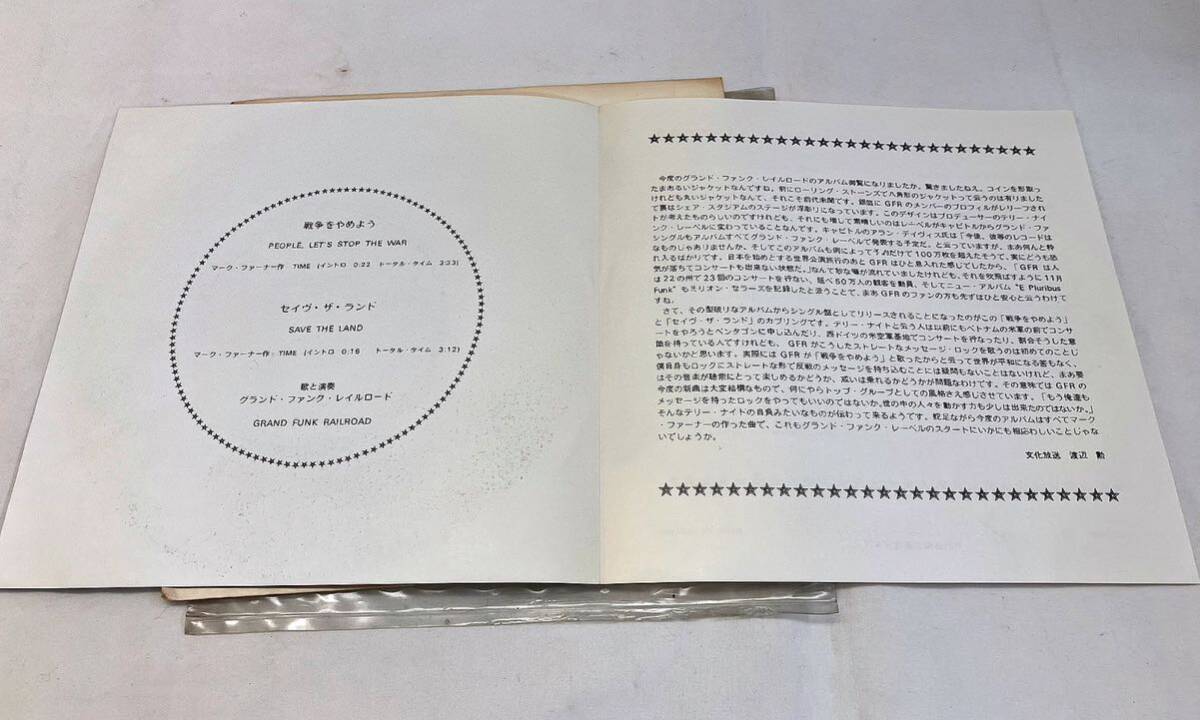 戦争をやめよう
PEOPLE, LET'S STOP THE WAR
マーク・ファーナー作 TIME (イントロ 0:22 トータル・タイム 3:33)
セイヴ・ザ・ランド
SAVE THE LAND
マーク・ファーナー作: TIME (イントロ 0:16 トータル・タイム 3:12)
歌と演奏
グランド・ファンク・レイルロード
GRAND FUNK RAILROAD
今度のグランド・ファンク・レイルロードのアルバム御覧になりましたか。驚きましたねえ。コインを形取っ
たまあるいジャケットなんですね。前にローリング・ストーンズで八角形のジャケットって云うのは有りました
けれども丸いジャケットなんて、それこそ前代未聞です。銀色に GFR のメンバーのプロフィルがレリーフされ
て裏はシェア・スタジアムのステージが浮彫りになっています。このデザインはプロデューサーのテリー・ナイ
トが考えたものらしいのですけれども、それにも増して素晴しいのはレーベルがキャピトルからグランド・ファ
ンク・レーベルに変わっていることなんです。キャピトルのアラン・デイヴィス氏は「今後、彼等のレコードは
シングルもアルバムすべてグランド・ファンク・レーベルで発表する予定だ。と云っていますが、まあ何んと粋
なものじゃありませんか。そしてこのアルバムも例によって予約だけで100万枚を超えたそうで、実にどうも恐
れ入るばかりです。日本を始めとする世界公演旅行のあと GFR はひと息入れた感じでしたから、「GFR は人
気が落ちてコンサートも出来ない状態だ。」なんて妙な噂が流れていましたけれども、それを吹飛ばすように11月
は22の州で23回のコンサートを行ない、延べ50万人の観客を動員、そしてニュー・アルバム "E Pluribus
Funk" もミリオン・セラーズを記録したと云うことで、まあ GFR のファンの方も先ずはひと安心と云うわけで
すね。
さて、その型破りなアルバムからシングル盤としてリリースされることになったのがこの「戦争をやめよう」
と「セイヴ・ザ・ランド」のカプリングです。テリー・ナイトと云う人は以前にもベトナムの米軍の前でコンサ
ートをやろうとペンタゴンに申し込んだり、西ドイツの米空軍基地でコンサートを行なったり、割合そうした意
識を持っている人ですけれども、GFR がこうしたストレートなメッセージ・ロックを歌うのは初めてのことじ
ゃないかと思います。実際には GFR が「戦争をやめよう」と歌ったからと云って世界が平和になる筈もなく、
僕自身もロックにストレートな形で反戦のメッセージを持ち込むことには疑問もないことはないけれど、まあ要
はその音楽が聴衆にとって楽しめるかどうか、或いは乗れるかどうかが問題なわけです。その意味では GFR の
今度の新曲は大変結構なもので、何にやらトップ・グループとしての風格さえ感じさせています。「もう俺達も
メッセージを持ったロックをやってもいいのではないか。世の中の人々を動かす力も少しは出来たのではないか。」
そんなテリー・ナイトの自負みたいなものが伝わって来るようです。蛇足ながら今度のアルバムはすべてマーク
・ファーナーの作った曲で、これもグランド・ファンク・レーベルのスタートにいかにも相応わしいことじゃな
いでしょうか。
文化放送 渡辺 勲